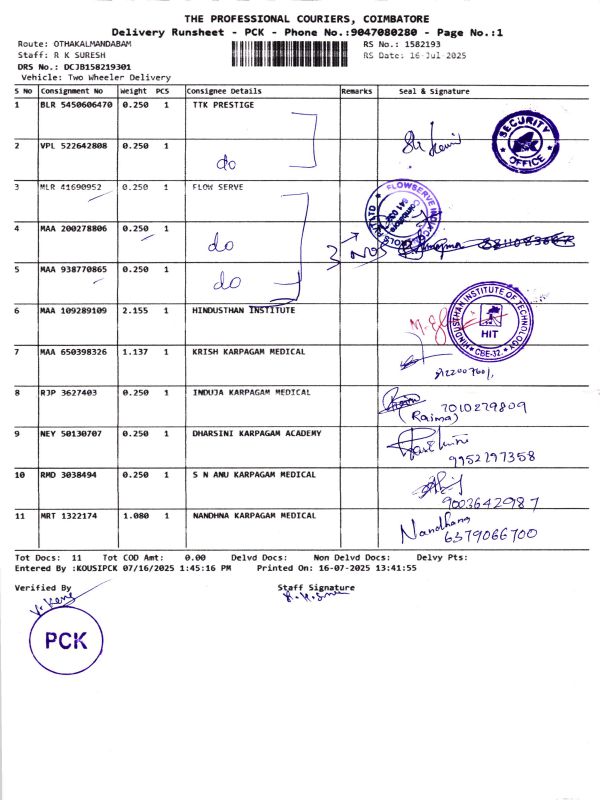 THE PROFESSIONAL COURIERS, COIMBATORE
Delivery Runsheet - PCK - Phone No.:9047080280 - Page No.:1
Route: OTHAKALMANDABAM RS No.: 1582193
Staff: R K SURESH RS Date: 16-Jul-2025
DRS No.: DCJB158219301
Vehicle: Two Wheeler Delivery
S No Consignment No Weight PCS Consignee Details Remarks Seal & Signature
1 BLR 5450606470 0.250 1 TTK PRESTIGE
SECURITY OFFICE
2 VPL 522642808 0.250 1 do
3 MLR 41690952 0.250 1 FLOW SERVE
4 MAA 200278806 0.250 1 do 3 NOS
5 MAA 938770865 0.250 1 do
6 MAA 109289109 2.155 1 HINDUSTHAN INSTITUTE
HINDUSTHAN INSTITUTE OF TECHNOLOGY HIT CBE-32.
7 MAA 650398326 1.137 1 KRISH KARPAGAM MEDICAL
8 RJP 3627403 0.250 1 INDUJA KARPAGAM MEDICAL 7010279809
(Raima)
9 NEY 50130707 0.250 1 DHARSINI KARPAGAM ACADEMY
9952197358
10 RMD 3038494 0.250 1 S N ANU KARPAGAM MEDICAL
9003642987
11 MRT 1322174 1.080 1 NANDHNA KARPAGAM MEDICAL Nandhana
6379066700
Tot Docs: 11 Tot COD Amt: 0.00 Delvd Docs: Non Delvd Docs: Delvy Pts:
Entered By :KOUSIPCK 07/16/2025 1:45:16 PM Printed On: 16-07-2025 13:41:55
Verified By Staff Signature
PCK